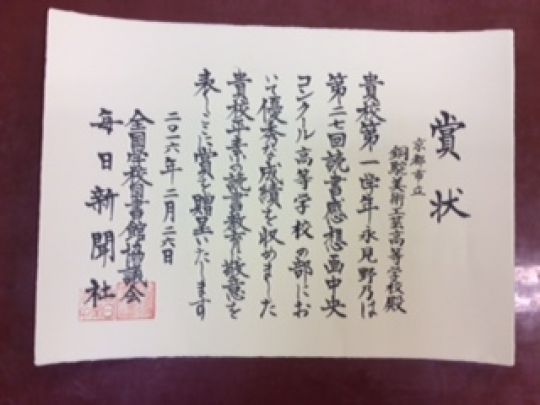 賞状
京都市立
銅駝美術工芸高等学校殿
貴校第一学年永見野乃は
第二七回読書感想画中央
コンクール高等学校の部にお
いて優秀な成績を収めました
貴校平素の読書教育に敬意を
表しここに賞を贈呈いたします
二〇一六年二月二六日
全国学校図書館協議会
毎日新聞社